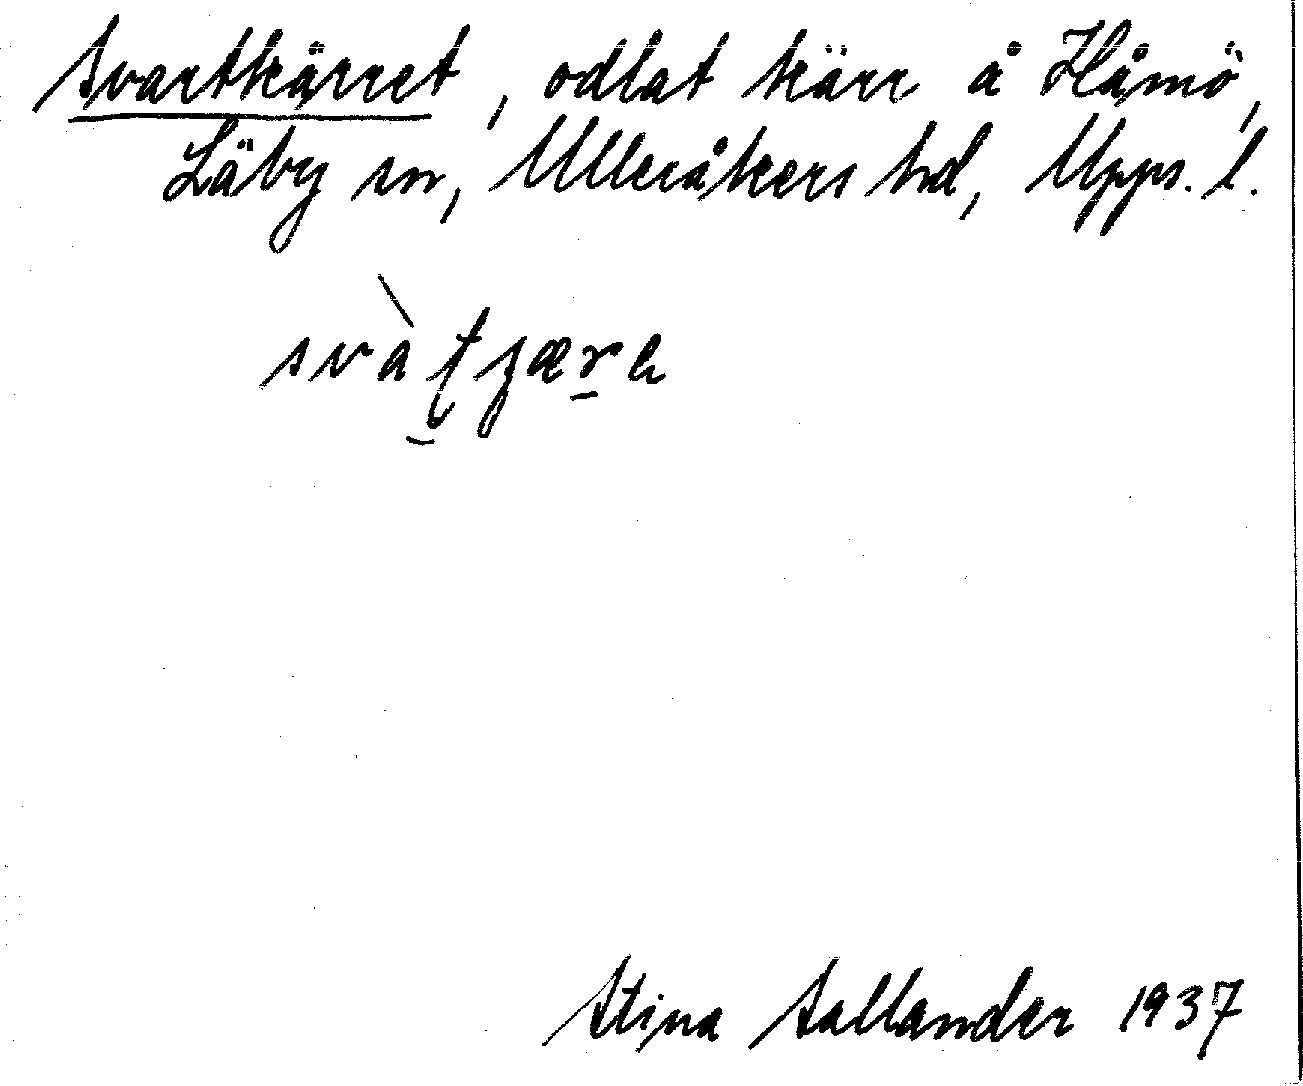 Svartkärret, odlat kärr å Håmö,
Läby sn, Ulleråkers hd, Upps. l.
svàʈȥære
Stina Sallander 1937